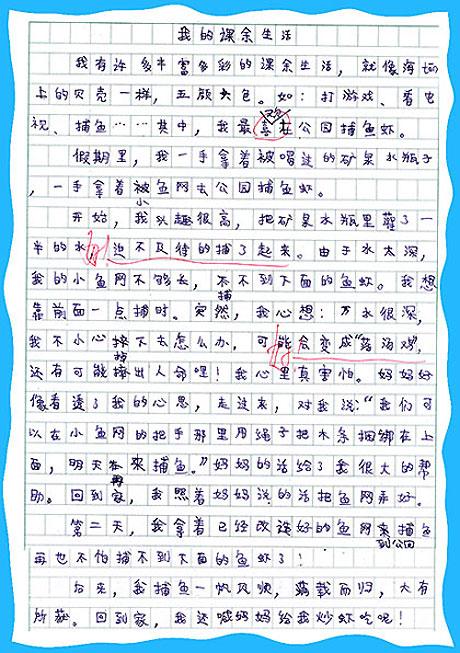 我的课余生活
我有许多丰富多彩的课余生活，就像海边
上的贝壳一样，五颜六色。如：打游戏、看电
视、捕鱼……其中，我最喜在公园捕鱼虾。
假期里，我一手拿着被喝过的矿泉水瓶子
，一手拿着被鱼网去公园捕鱼虾。
小
开始，我兴趣很高，把矿泉水瓶里灌了一
半的水，迫不及待的捕了起来。由于水太深，
我的小鱼网不够长，不不到下面的鱼虾。我想
捕
靠前面一点捕时。突然，我心想：万水很深，
我不小心掉下去怎么办，可能会变成“落汤鸡”，
还有可能摔出人命哩！我心里真害怕。妈妈好
像看透了我的心思，走过来，对我说：“我们可
以在小鱼网的把手那里用绳子把木条捆绑在上
面，明天来捕鱼。”妈妈的话给了我很大的帮
再
助。回到家，我照着妈妈说的话把鱼网弄好。
第二天，我拿着已经改造好的鱼网来捕鱼
到公园
再也不怕捕不到下面的鱼虾了！
后来，我捕鱼一帆风顺，满载而归，大有
所获。回到家，我还喊妈妈给我炒虾吃呢！